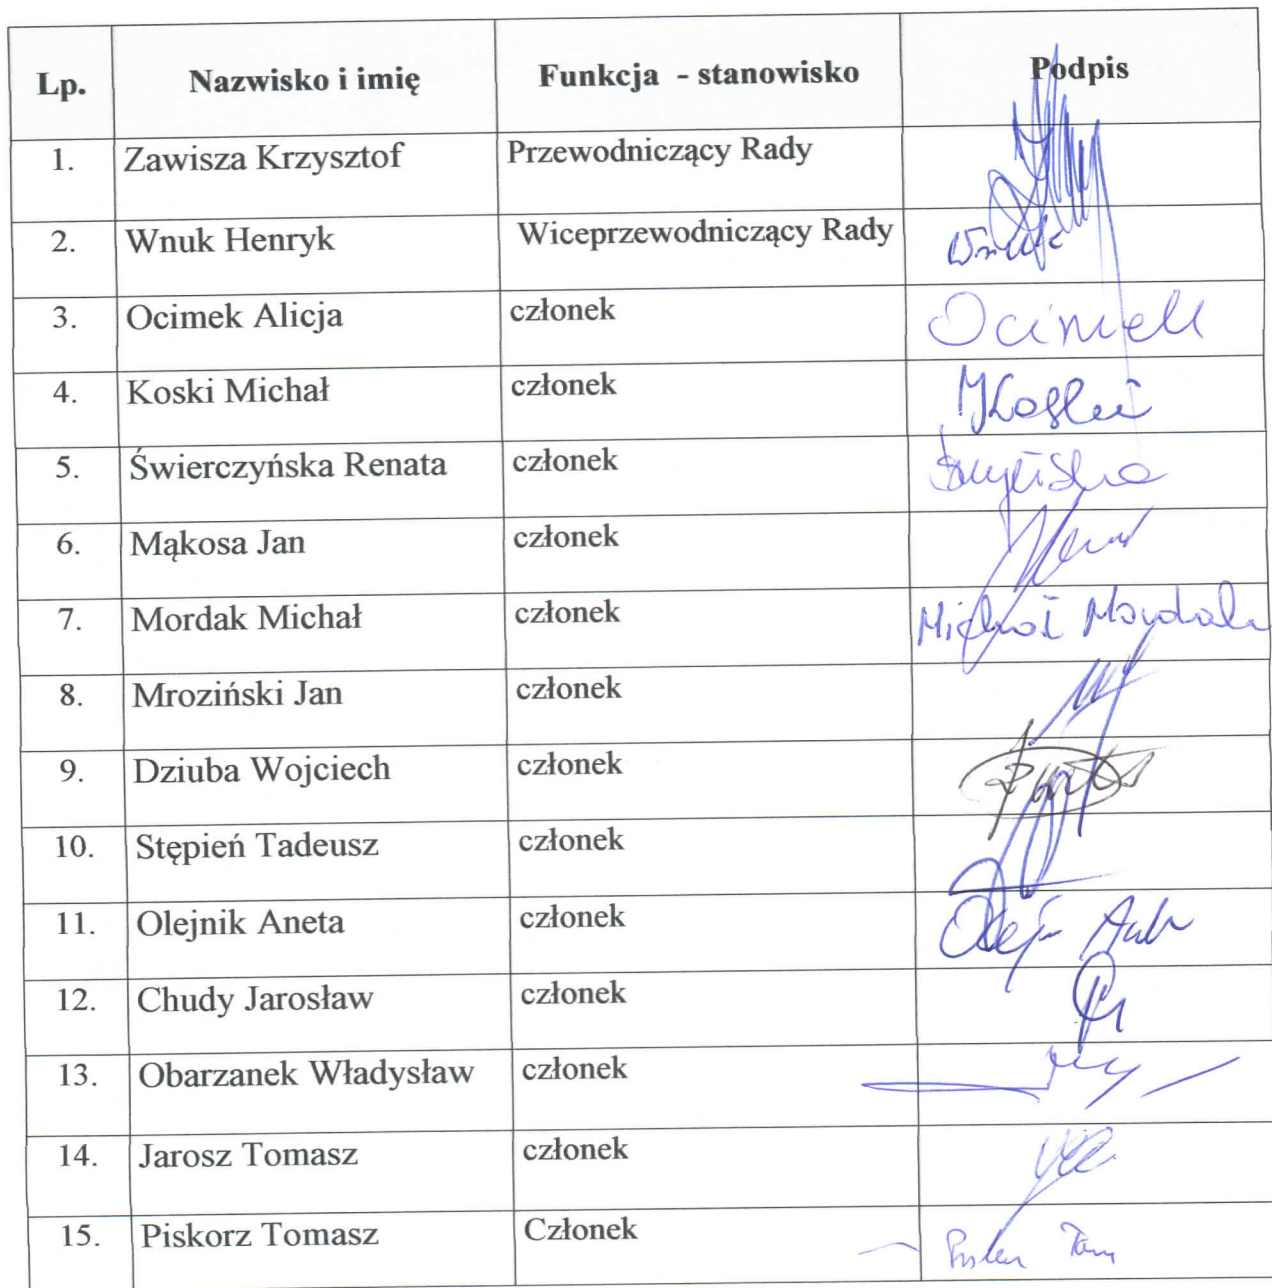 Lp. Nazwisko i imię Funkcja - stanowisko Podpis
1. Zawisza Krzysztof Przewodniczący Rady
2. Wnuk Henryk Wiceprzewodniczący Rady Wnuk
3. Ocimek Alicja członek Ocimek
4. Koski Michał członek MKoski
5. Świerczyńska Renata członek
6. Mąkosa Jan członek
7. Mordak Michał członek Michał Mordak
8. Mroziński Jan członek
9. Dziuba Wojciech członek
10. Stępień Tadeusz członek
11. Olejnik Aneta członek
12. Chudy Jarosław członek
13. Obarzanek Władysław członek
14. Jarosz Tomasz członek
15. Piskorz Tomasz Członek